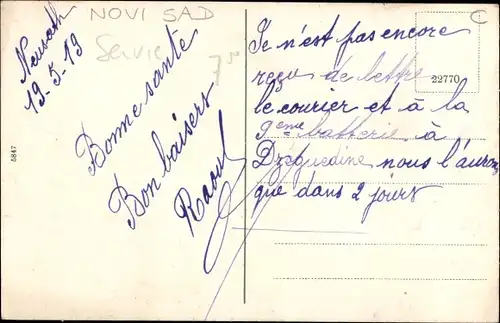 NOVI SAD
Servie
C
19-5-19
Bonne sante
Bon baisers
Raoul
Je n'est pas encore
reçu de lettre
22770
le courier et à la
9eme batterie à
nous l'aurons
que dans 2 jours
5847